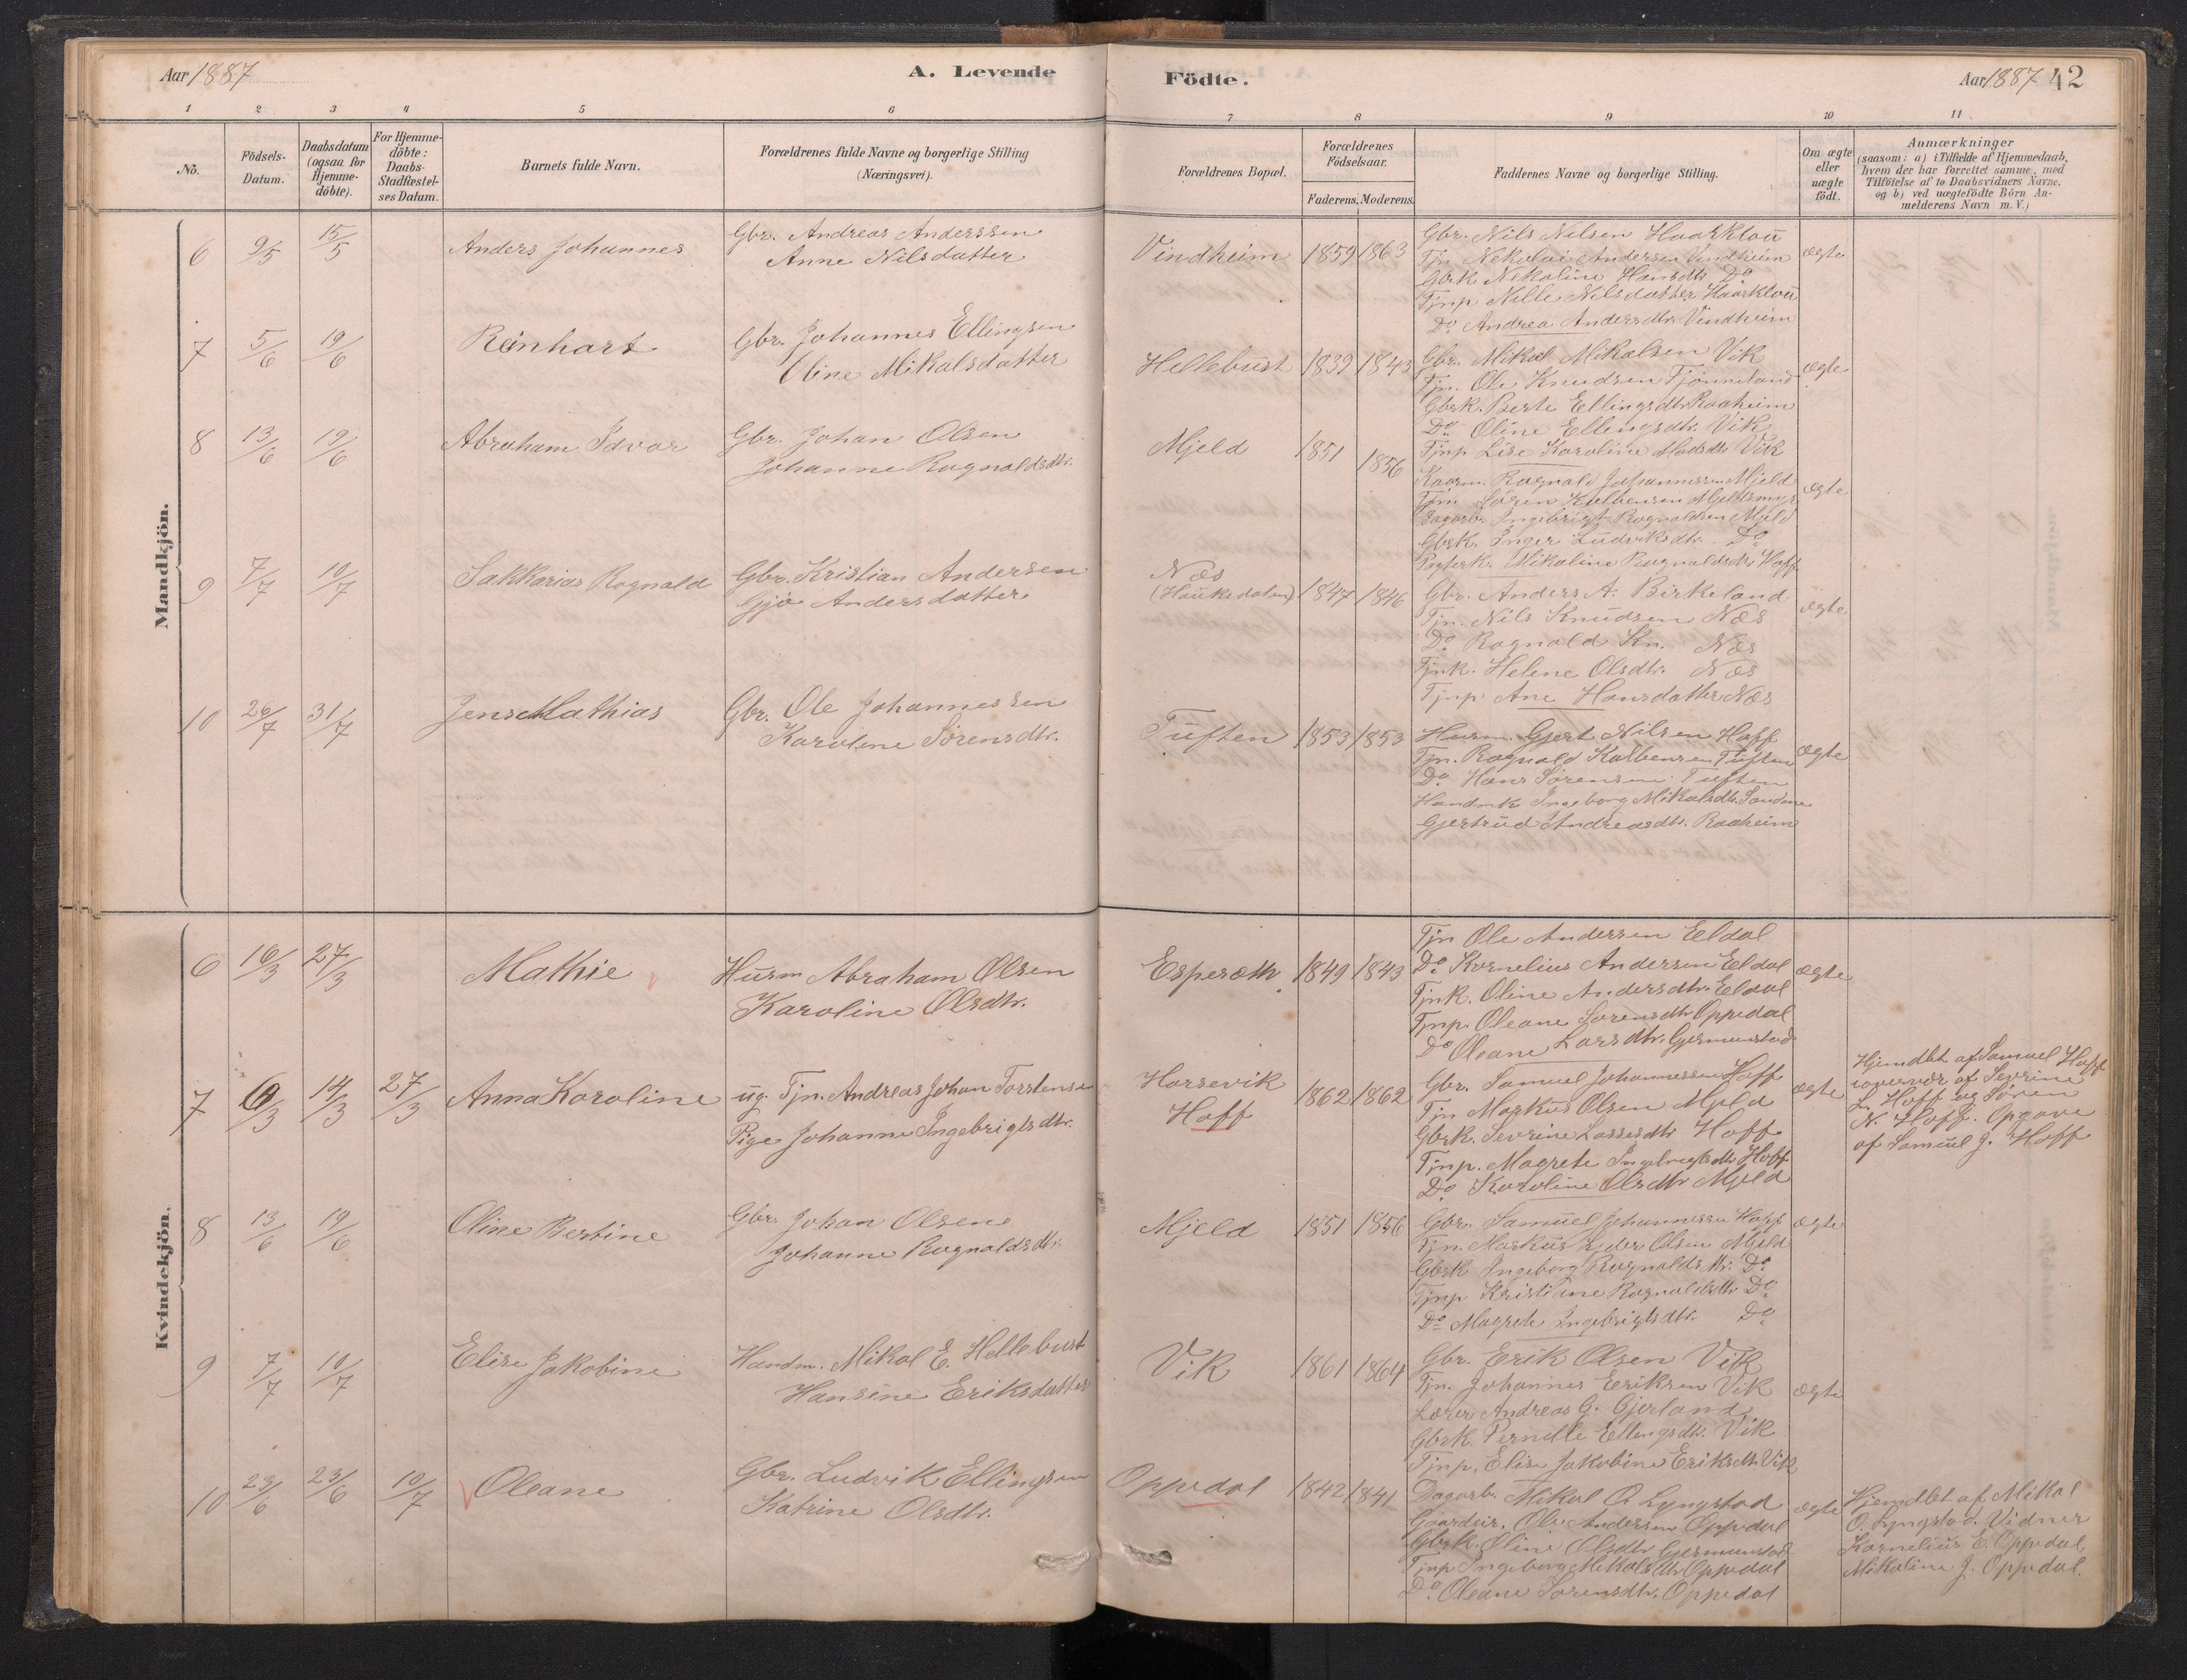 Aar 1887
A. Levende
Födte.
Aar 1887 42
1 2 3 4 5 6 7 8 9 10 11
No.
Födsels-
Datum.
Daabsdatum
(ogsaa for
Hjemme-
döbte).
For Hjemme-
döbte:
Daabs-
Stadfæstel-
ses Datum.
Barnets fulde Navn.
Forældrenes fulde Navne og borgerlige Stilling
(Næringsvei).
Forældrenes Bopæl.
Forældrenes
Födselsaar.
Faderens. Moderens.
Faddernes Navne og borgerlige Stilling.
Om ægte
eller
uægte
födt.
Anmærkninger
(saasom: a) i Tilfælde af Hjemmedaab,
hvem der har forrettet samme, med
Tilföielse af to Daabsvidners Navne,
og b) ved uægtefödte Börn An-
melderens Navn m. V.)
Mandkjön.
6 9/5 15/5 Anders Johannes
Gbr. Andreas Anderssen
Anne Nilsdatter
Vindheim 1859 1863
Gbr. Nils Nilsen Haarklou
Tjn Nikolai Andersen Vindheim
Gbrk Nikoline Hansdtr. Do
Tjnp Nille Nilsdatter Haarklou
Do Andrea Andersdtr. Vindheim
ægte
7 5/6 19/6 Reinhart
Gbr. Johannes Ellingsen
Oline Mikalsdatter
Hellebust 1839 1843
Gbr. Mikal Mikalsen Vik
Tjn. Ole Knudsen Tjønneland
Gbrk. Berte Ellingsdtr Raaheim
Do Oline Ellingsdtr. Vik
Tjnp Lise Karoline Madsdtr Vik
ægte
8 13/6 19/6 Abraham Idvar
Gbr. Johan Olsen
Johanne Rognaldsdtr.
Mjeld 1851 1856
Kaarm. Rognald Johannessen Mjeld
Tjn Søren Kolbensen Mjeldsmyr
Dagarb. Ingebrigt Rognaldsen Mjeld
Gbrk. Inger Ludviksdtr. Do
Pagterk. Mikaline Rognaldsdtr Hoff
ægte
9 7/7 10/7 Sakkarias Rognald
Gbr. Kristian Andersen
Gjø Andersdatter
Næs
(Haukedalen) 1847 1846
Gbr. Anders A. Birkeland
Tjn. Nils Knudsen Næs
Do Rognald Kn. Næs
Tjnk. Helene Olsdtr. Næs
Tjnp Ane Hansdatter Næs
ægte
10 26/7 31/7 Jens Mathias
Gbr. Ole Johannessen
Karoline Sørensdtr.
Tuften 1853 1853
Husm. Gjert Nilsen Hoff
Tjn. Rognald Kolbensen Tuften
Do Hans Sørensen Tuften
Handmk Ingeborg Mikalsdtr. Sandne
Gjertrud Andreasdtr. Raaheim
ægte
Kvindekjön.
6 16/3 27/3 Mathie
Husm Abraham Olsen
Karoline Olsdtr.
Esperæth 1849 1843
Tjn Ole Andersen Eldal
Do Kornelius Andersen Eldal
Tjnk. Oline Andersdtr. Eldal
Tjnp. Oleane Sørensdtr Oppedal
Do Oleane Larsdtr. Gjermunstad
ægte
7 6/3 14/3 27/3 Anna Karoline
ug. Tjn. Andreas Johan Torstensen
Pige Johanne Ingebrigtsdtr.
Horsevik
Hoff 1862 1862
Gbr. Samuel Johannessen Hoff
Tjn Markus Olsen Mjeld
Gbrk. Sevrine Lassesdtr Hoff
Tjnp. Magrete Ingebrigtsdtr Hoff
Do Karoline Olsdtr Mjeld
ægte
Hjemdbt af Samuel Hoff
iovervær af Sevrine
L. Hoff og Søren
N. Hoff. Opgave
af Samuel J. Hoff
8 13/6 19/6 Oline Bertine
Gbr. Johan Olsen
Johanne Rognaldsdtr.
Mjeld 1851 1856
Gbr. Samuel Johannessen Hoff
Tjn. Markus Olsen Mjeld
Gbrk Ingeborg Rognaldsdtr. Do
Tjnp Kristiane Rognaldsdtr Do
Do Magrete Ingebrigtsdtr. Do
ægte
9 7/7 10/7 Elise Jakobine
Handm. Mikal E. Hellebust
Hansine Eriksdatter
Vik 1861 1864
Gbr. Erik Olsen Vik
Tjn. Johannes Eriksen Vik
Lærer Andreas G. Gjerland
Gbrk. Pernille Ellingsdtr. Vik
Tjnp. Elise Jakobine Eriksdtr. Vik
ægte
10 23/6 23/6 10/7 Oleane
Gbr. Ludvik Ellingsen
Katrine Olsdtr.
Oppedal 1842 1841
Dagarb. Mikal O. Lyngstad
Gaardeier. Ole Andersen Oppedal
Gbrk. Oline Olsdtr Gjermunstad
Tjnp Ingeborg Mikalsdtr Oppedal
Do. Oleane Sørensdtr. Oppedal
ægte
Hjemdbt af Mikal
O. Lyngstad. Vidner
Kornelius E. Oppedal,
Mikaline J. Oppedal.